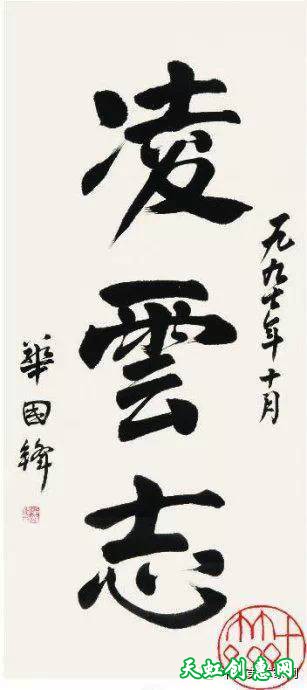 一九九七年十月
凌雲志
華國鋒
天虹创意网